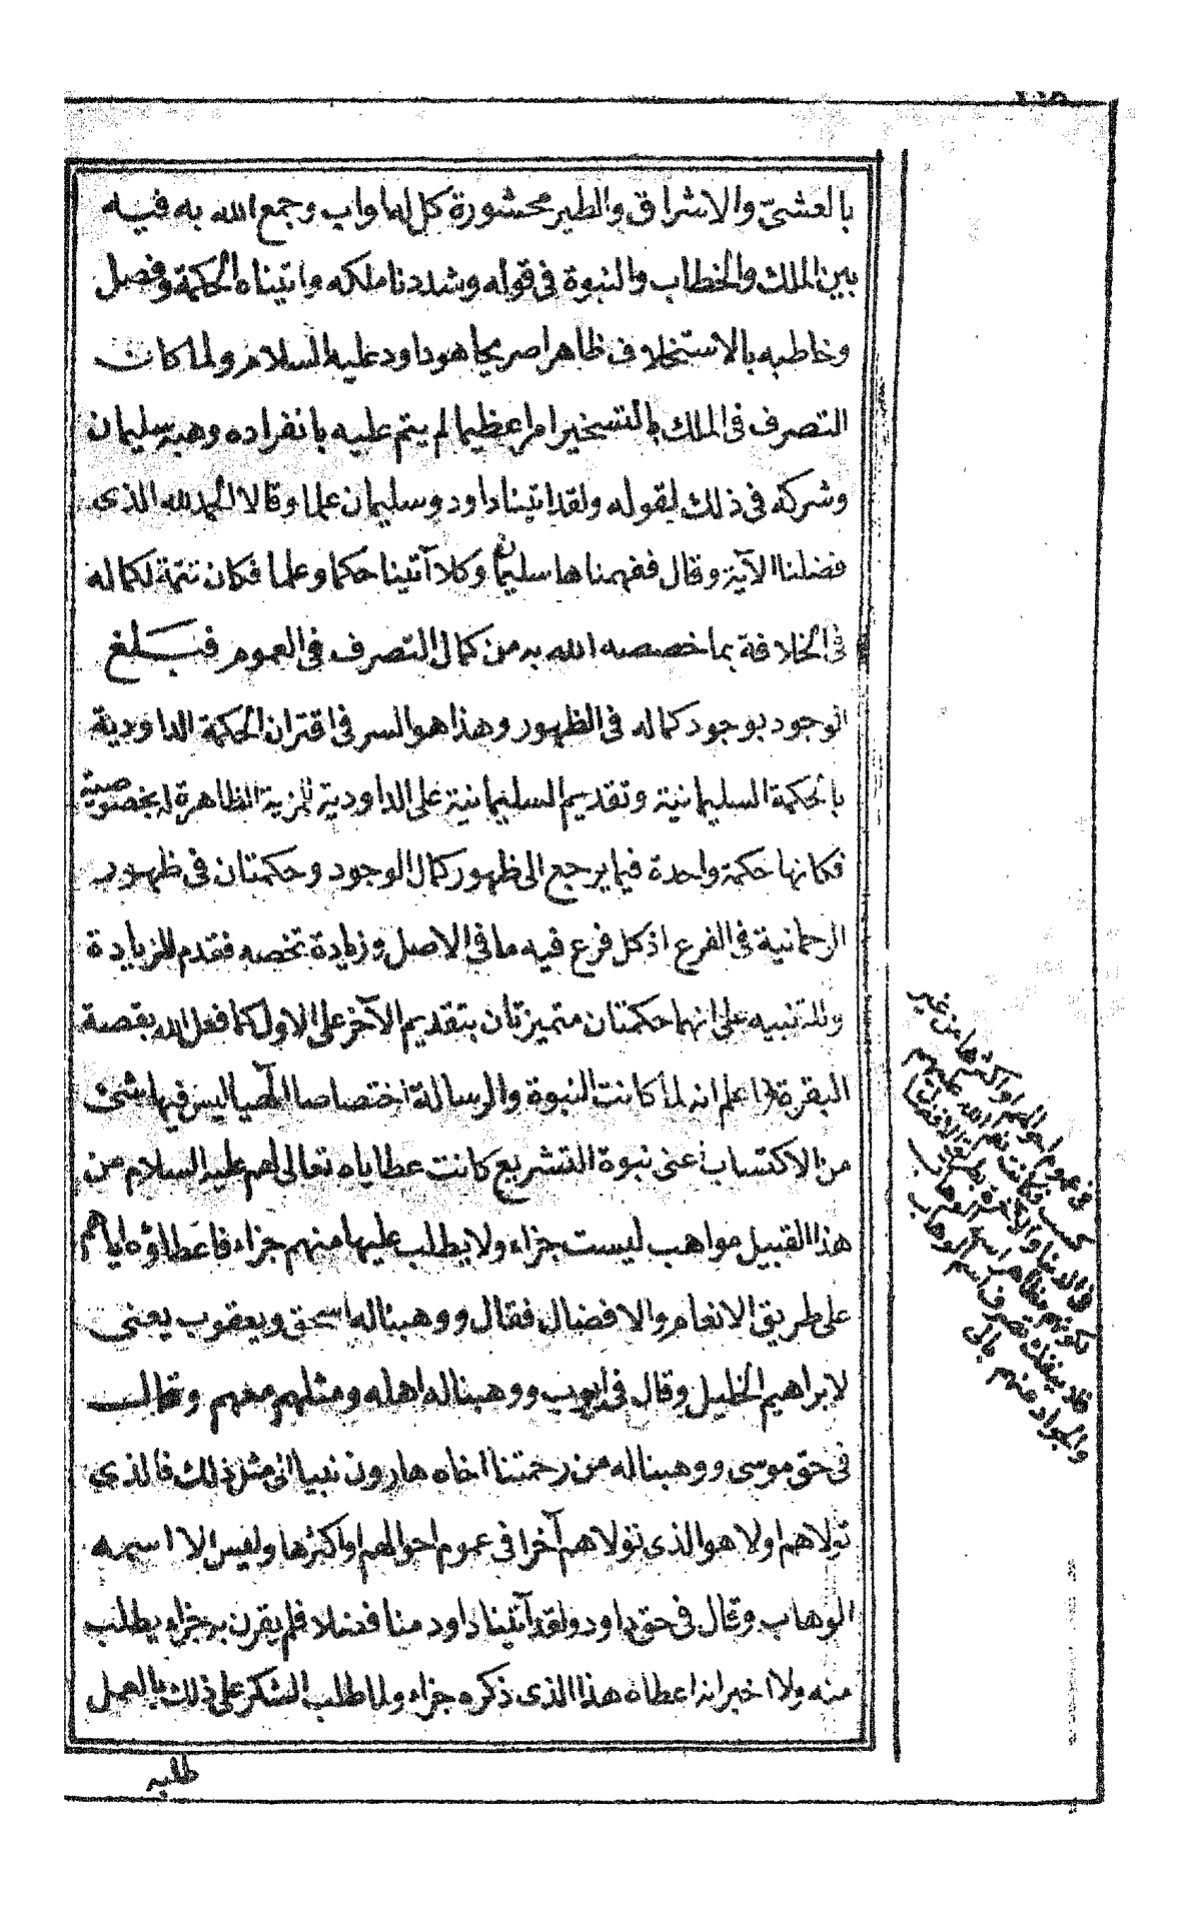 بالعشيّ والاشراق والطير محشورة كل له اواب وجمع الله به فيه
بين الملك والخطاب والنبوة في قوله وشددنا ملكه واتيناه الحكمة وفصل
وخاطبه بالاستخلاف ظاهرا صريحا هو داود عليه السلام ولما كان
التصرف في الملك بالتسخير امرا عظيما لم يتم عليه بانفراده وهبه سليمان
وشركه في ذلك لقوله ولقد اتينا داود وسليمان علما وقالا الحمد لله الذي
فضلنا الآية وقال ففهمناها سليمان وكلا آتينا حكما وعلما فكان تتمة لكماله
في الخلافة بما خصصه الله به من كمال التصرف في العموم فبلغ
الوجود بوجود كماله في الظهور وهذا هو السر في اقتران الحكمة الداودية
بالحكمة السليمانية وتقديم السليمانية على الداودية للمزية الظاهرة له بخصوصية
فكانها حكمة واحدة فيما يرجع الى ظهور كمال الوجود وحكمتان في ظهور
الرحمانية في الفرع اذ كل فرع فيه ما في الاصل وزيادة تخصه فقدم للزيادة
وللتنبيه على انهما حكمتان متميزتان بتقديم الآخر على الاول كما فعل الله بقصة
البقرة اعلم انه لما كانت النبوة والرسالة اختصاصا الٓهيا ليس فيها شئ
من الاكتساب اعني نبوة التشريع كانت عطاياه تعالى لهم عليه السلام من
هذا القبيل مواهب ليست جزاء ولا يطلب عليها منهم جزاء فاعطاؤه اياهم
على طريق الانعام والافضال فقال ووهبنا له اسحق ويعقوب يعني
لابراهيم الخليل وقال في ايوب ووهبنا له اهله ومثلهم معهم وقال
في حق موسى ووهبنا له من رحمتنا اخاه هارون نبيا الى مثل ذلك فالذي
تولاهم اولا هو الذي تولاهم آخرا في عموم احوالهم او اكثرها وليس الا اسمه
الوهاب وقال في حق داود ولقد آتينا داود منا فضلا فلم يقرن به جزاء يطلب
منه ولا اخبر انه اعطاه هذا الذي ذكره جزاء ولما طلب الشكر على ذلك بالعمل
طلبه
في عموم احوالهم او اكثرها من غير
كسب فكانت نعم الله عليهم
في الدنيا والآخرة بطريق الافضال
لكونهم مظاهر اسمه الوهاب
والجواد منهم بالى